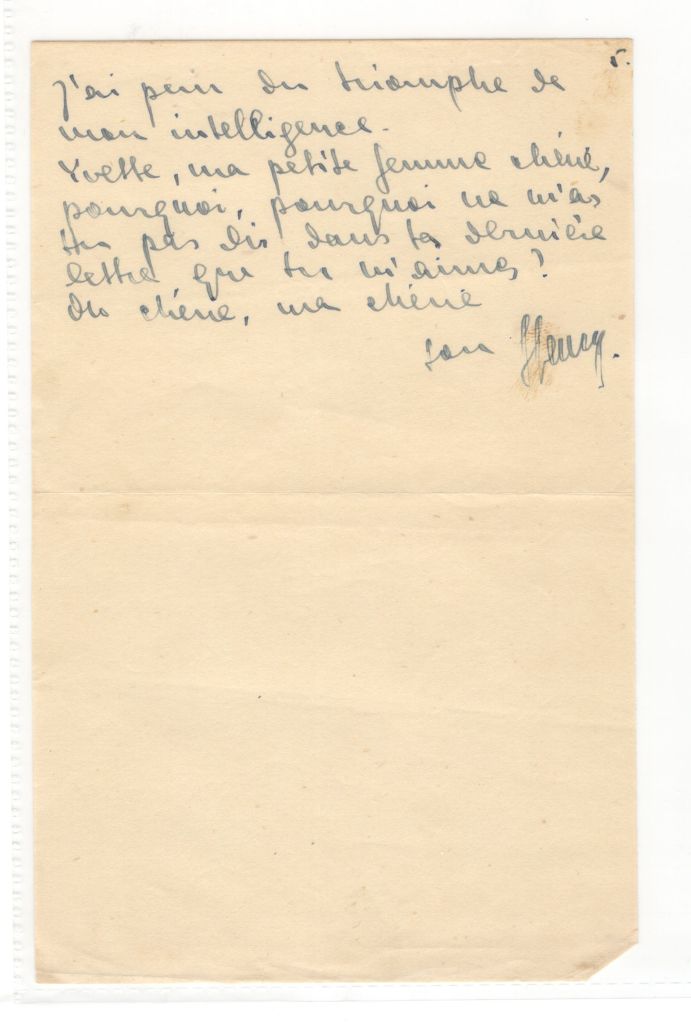 5.
J'ai peur du triomphe de
mon intelligence.
Yvette, ma petite femme chérie,
pourquoi, pourquoi ne m'as
tu pas dis dans ta dernière
lettre que tu m'aimes?
Oh chérie, ma chérie
ton Henry.